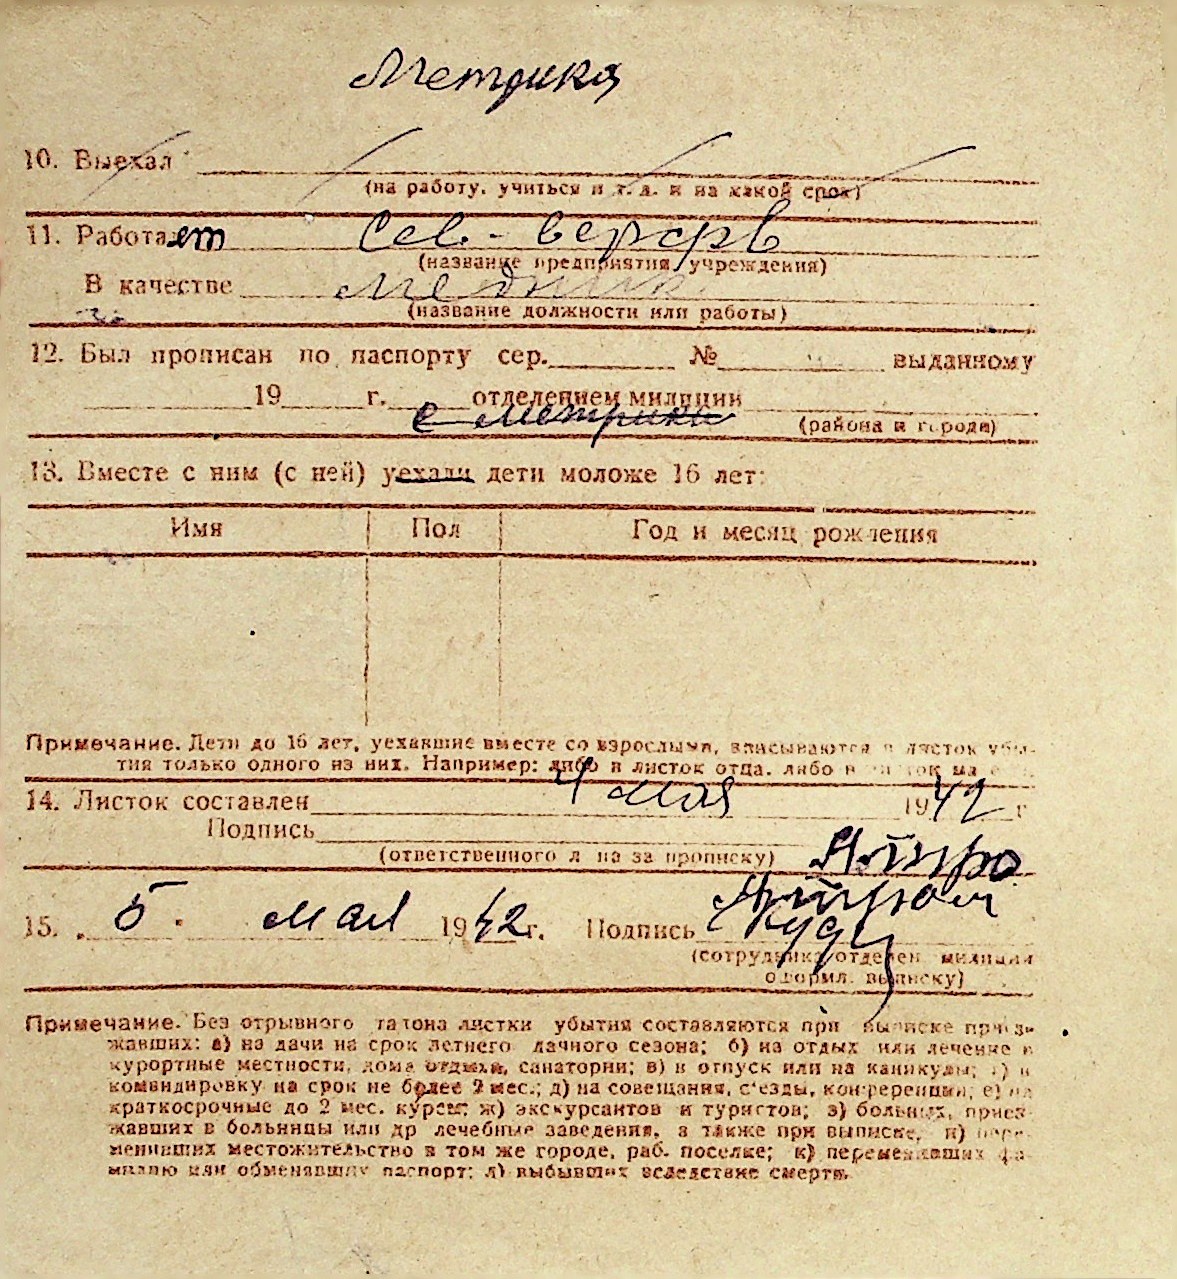 Метрика
10. Выехал
(на работу, учиться и т. д. и на какой срок)
11. Работает Сев-верфь
(название предприятия, учреждения)
В качестве медник
(название должности или работы)
12. Был прописан по паспорту сер. № выданному
19 г. отделением милиции
с метрики
(района и города)
13. Вместе с ним (с ней) уехали дети моложе 16 лет:
Имя Пол Год и месяц рождения
Примечание. Дети до 16 лет, уехавшие вместе со взрослыми, вписываются в листок убы-
тия только одного из них. Например: либо в листок отца, либо в листок ма
14. Листок составлен 4 мая 1942 г
Подпись
(ответственного л на за прописку)
15. 5 мая 1942 г. Подпись
(сотрудника отделен милиции
оформл. выписку)
Примечание. Без отрывного талона листки убытия составляются при выписке приез-
жавших: а) на дачи на срок летнего дачного сезона; б) на отдых или лечение в
курортные местности, дома отдыха, санатории; в) в отпуск или на каникулы; г) в
командировку на срок не более 2 мес.; д) на совещания, с'езды, конференции; е) на
краткосрочные до 2 мес. курсы; ж) экскурсантов и туристов; з) больных, приез-
жавших в больницы или др лечебные заведения, а также при выписке, и) пере-
менивших местожительство в том же городе, раб. поселке; к) переменивших фа-
милию или обменявших паспорт; л) выбывших вследствие смерти.